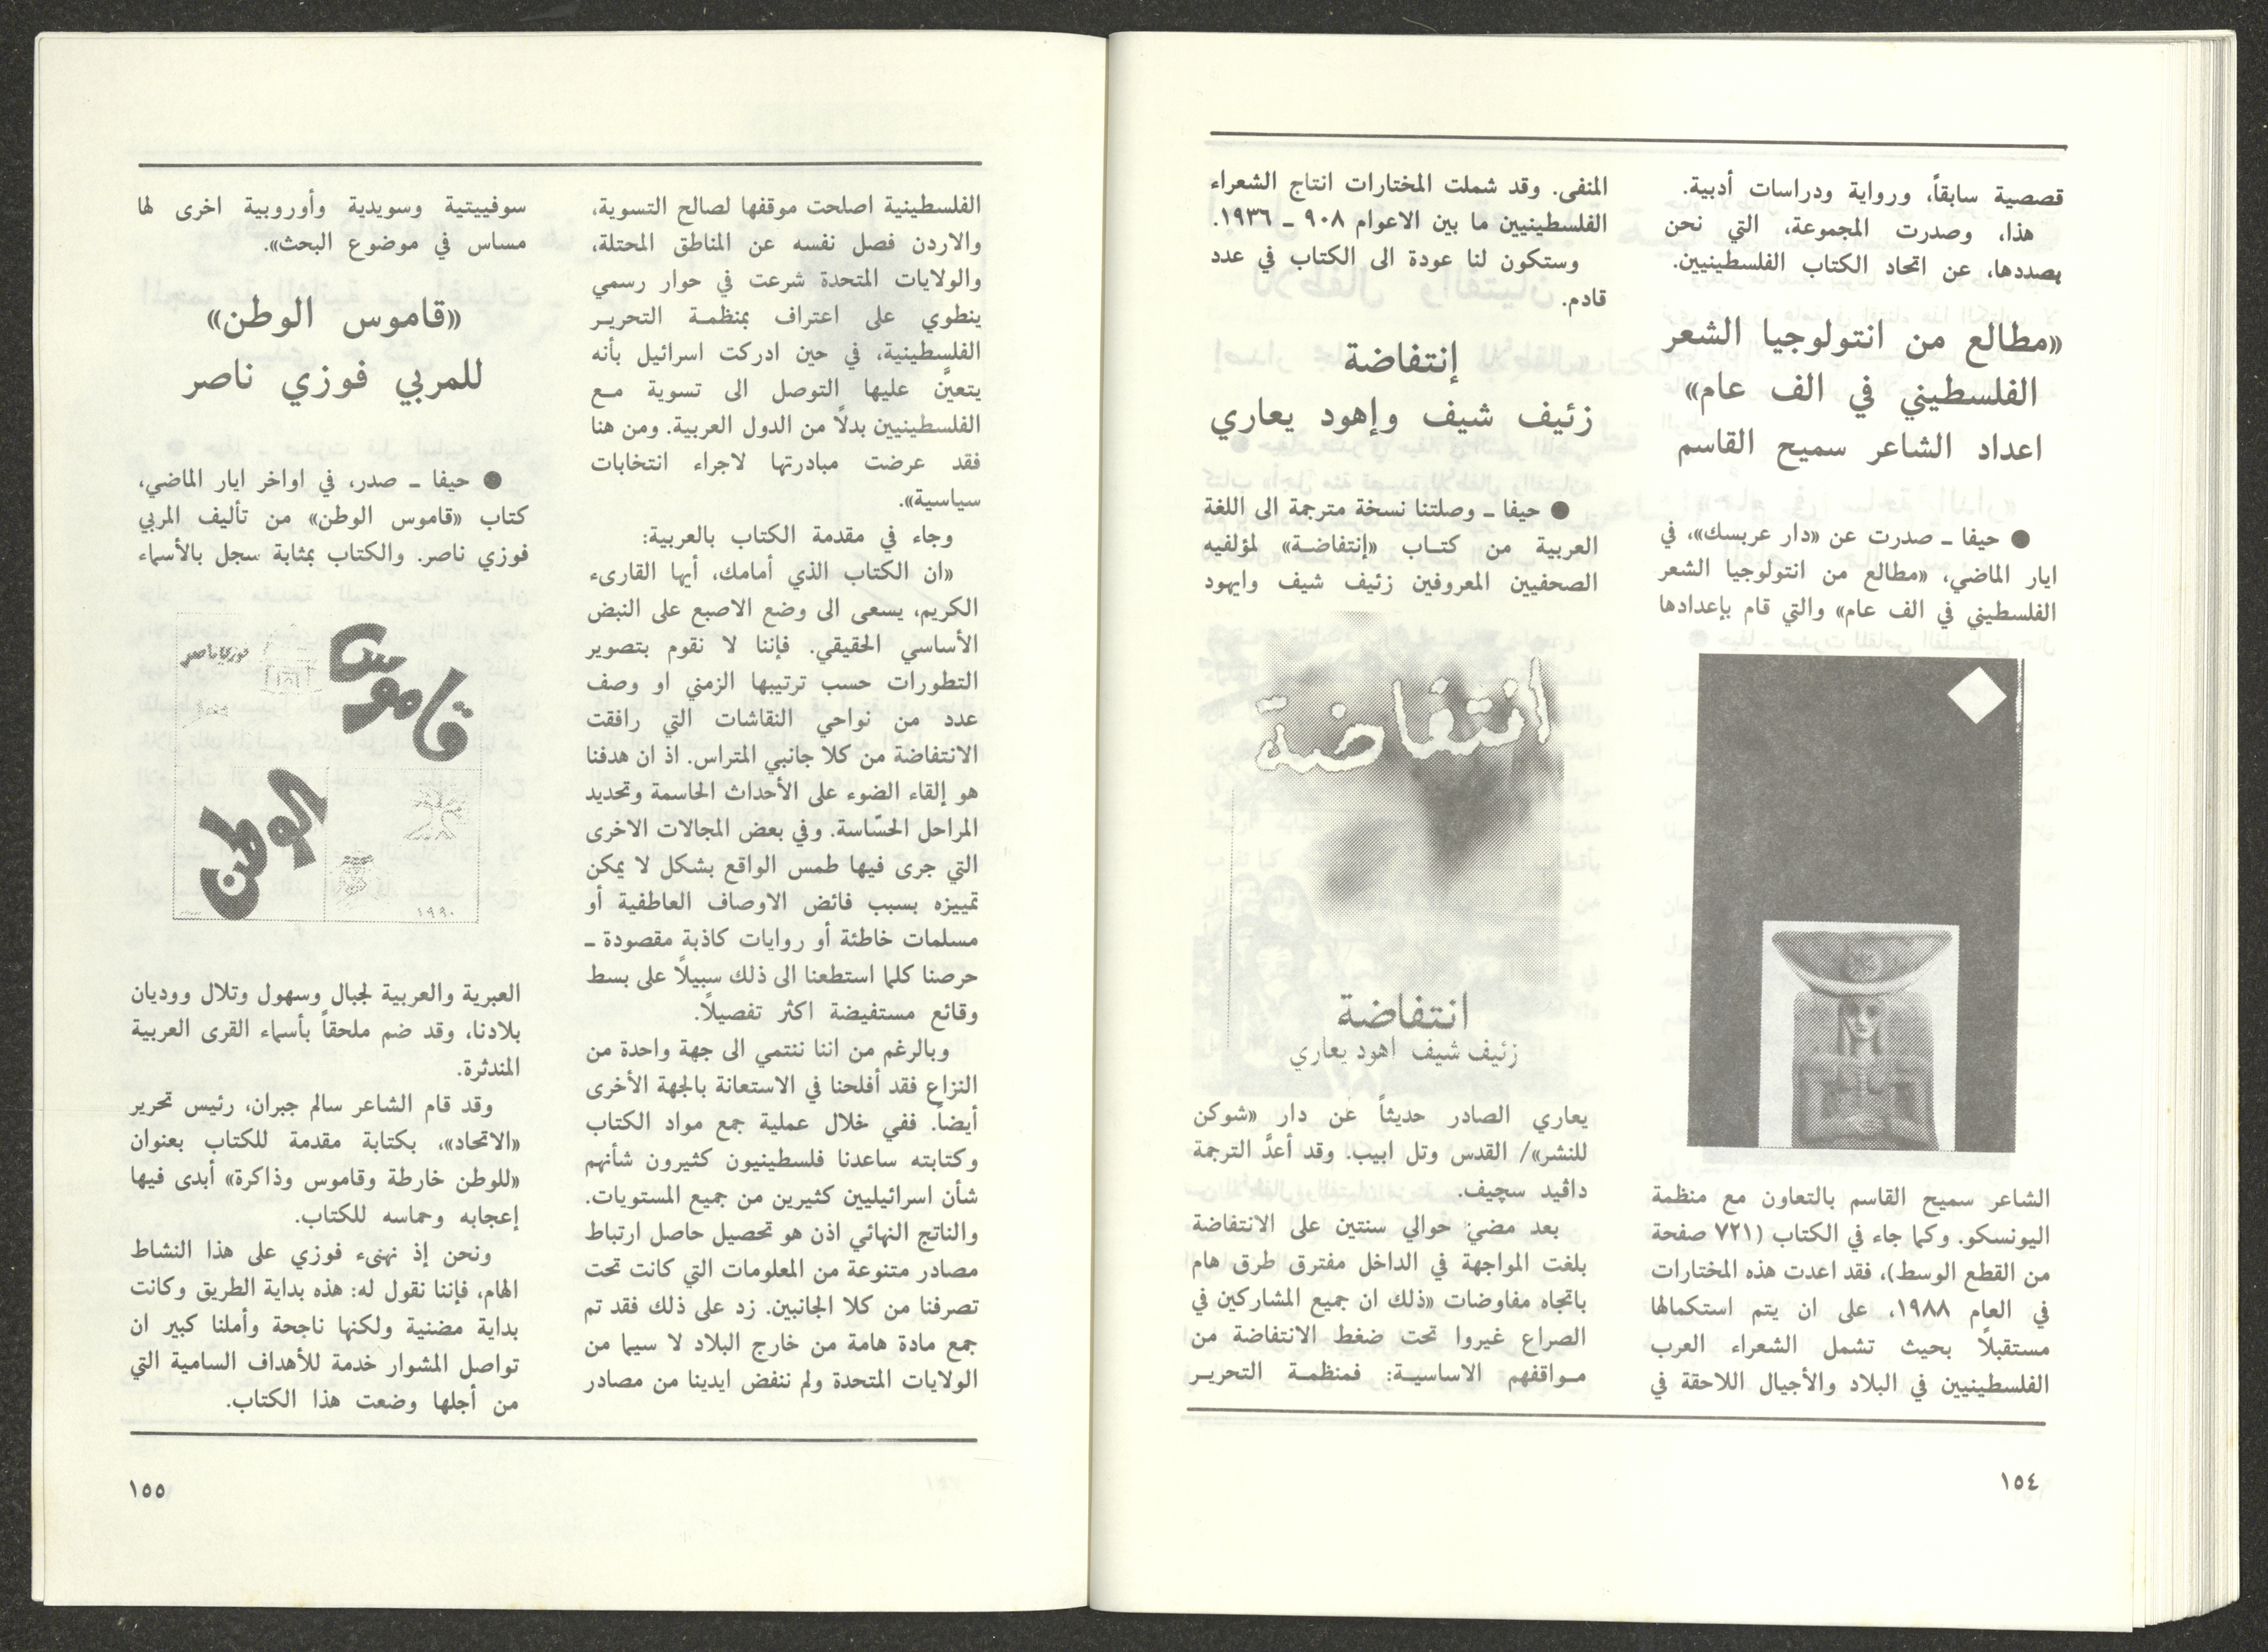 قصصية سابقاً، ورواية ودراسات أدبية.
هذا، وصدرت المجموعة، التي نحن
بصددها، عن اتحاد الكتاب الفلسطينيين.
«مطالع من انتولوجيا الشعر
الفلسطيني في الف عام»
اعداد الشاعر سميح القاسم
● حيفا ـ صدرت عن «دار عربسك»، في
ايار الماضي، «مطالع من انتولوجيا الشعر
الفلسطيني في الف عام» والتي قام بإعدادها
الشاعر سميح القاسم بالتعاون مع منظمة
اليونسكو. وكما جاء في الكتاب (٧٢١ صفحة
من القطع الوسط)، فقد اعدت هذه المختارات
في العام ١٩٨٨، على ان يتم استكمالها
مستقبلاً بحيث تشمل الشعراء العرب
الفلسطينيين في البلاد والأجيال اللاحقة في
المنفى. وقد شملت المختارات انتاج الشعراء
الفلسطينيين ما بين الاعوام ٩٠٨ ـ ١٩٣٦.
وستكون لنا عودة الى الكتاب في عدد
قادم.
إنتفاضة
زئيف شيف وإهود يعاري
● حيفا ـ وصلتنا نسخة مترجمة الى اللغة
العربية من كتـاب «إنتفاضـة» لمؤلفيه
الصحفيين المعروفين زئيف شيف وايهود
انتفاضة
انتفاضة
زئيف شيف اهود يعاري
يعاري الصادر حديثاً عن دار «شوكن
للنشر»/ القدس وتل ابيب. وقد أعدَّ الترجمة
داڤيد سچيف.
بعد مضيّ حوالي سنتين على الانتفاضة
بلغت المواجهة في الداخل مفترق طرق هام
باتجاه مفاوضات «ذلك ان جميع المشاركين في
الصراع غيروا تحت ضغط الانتفاضة من
مـواقفهم الاساسيـة: فمنظمـة التحريـر
١٥٤
الفلسطينية اصلحت موقفها لصالح التسوية،
والاردن فصل نفسه عن المناطق المحتلة،
والولايات المتحدة شرعت في حوار رسمي
ينطوي على اعتراف بمنظمـة التحريـر
الفلسطينية، في حين ادركت اسرائيل بأنه
يتعيَّن عليها التوصل الى تسوية مـع
الفلسطينيين بدلاً من الدول العربية. ومن هنا
فقد عرضت مبادرتها لاجراء انتخابات
سياسية».
وجاء في مقدمة الكتاب بالعربية:
«ان الكتاب الذي أمامك، أيها القارىء
الكريم، يسعى الى وضع الاصبع على النبض
الأساسي الحقيقي. فإننا لا نقوم بتصوير
التطورات حسب ترتيبها الزمني او وصف
عدد من نواحي النقاشات التي رافقت
الانتفاضة من كلا جانبي المتراس. اذ ان هدفنا
هو إلقاء الضوء على الأحداث الحاسمة وتحديد
المراحل الحسّاسة. وفي بعض المجالات الاخرى
التي جرى فيها طمس الواقع بشكل لا يمكن
تمييزه بسبب فائض الاوصاف العاطفية أو
مسلمات خاطئة أو روايات كاذبة مقصودة ـ
حرصنا كلما استطعنا الى ذلك سبيلاً على بسط
وقائع مستفيضة اكثر تفصيلاً.
وبالرغم من اننا ننتمي الى جهة واحدة من
النزاع فقد أفلحنا في الاستعانة بالجهة الأخرى
أيضاً. ففي خلال عملية جمع مواد الكتاب
وكتابته ساعدنا فلسطينيون كثيرون شأنهم
شأن اسرائيليين كثيرين من جميع المستويات.
والناتج النهائي اذن هو تحصيل حاصل ارتباط
مصادر متنوعة من المعلومات التي كانت تحت
تصرفنا من كلا الجانبين. زد على ذلك فقد تم
جمع مادة هامة من خارج البلاد لا سيما من
الولايات المتحدة ولم ننفض ايدينا من مصادر
سوفييتية وسويدية وأوروبية اخرى لها
مساس في موضوع البحث».
«قاموس الوطن»
للمربي فوزي ناصر
● حيفا ـ صدر، في اواخر ايار الماضي،
كتاب «قاموس الوطن» من تأليف المربي
فوزي ناصر. والكتاب بمثابة سجل بالأسماء
فوزي ناصر
قاموس
الوطن
١٩٩٠
العبرية والعربية لجبال وسهول وتلال ووديان
بلادنا، وقد ضم ملحقاً بأسماء القرى العربية
المندثرة.
وقد قام الشاعر سالم جبران، رئيس تحرير
«الاتحاد»، بكتابة مقدمة للكتاب بعنوان
«للوطن خارطة وقاموس وذاكرة» أبدى فيها
إعجابه وحماسه للكتاب.
ونحن إذ نهنىء فوزي على هذا النشاط
الهام، فإننا نقول له: هذه بداية الطريق وكانت
بداية مضنية ولكنها ناجحة وأملنا كبير ان
تواصل المشوار خدمة للأهداف السامية التي
من أجلها وضعت هذا الكتاب.
١٥٥